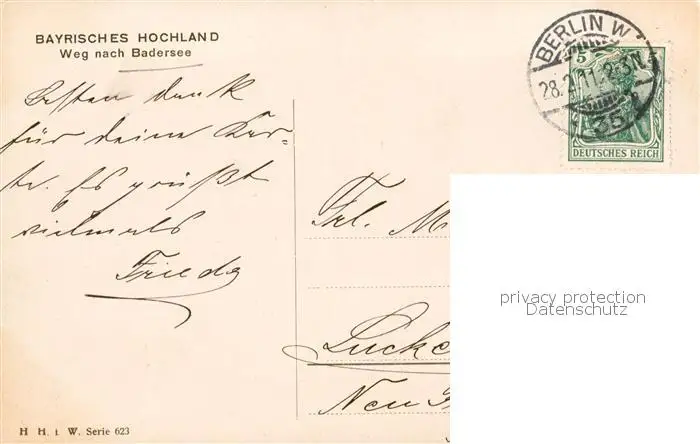 BAYRISCHES HOCHLAND
Weg nach Badersee
Besten dank
für deine Kar-
te. Es grüßt
vielmals
Frieda
BERLIN W.
28.2.11. 2-3N.
35
5 5
DEUTSCHES REICH
Frl. M
Lucke
Neu
privacy protection
Datenschutz
H. H. i. W. Serie 623